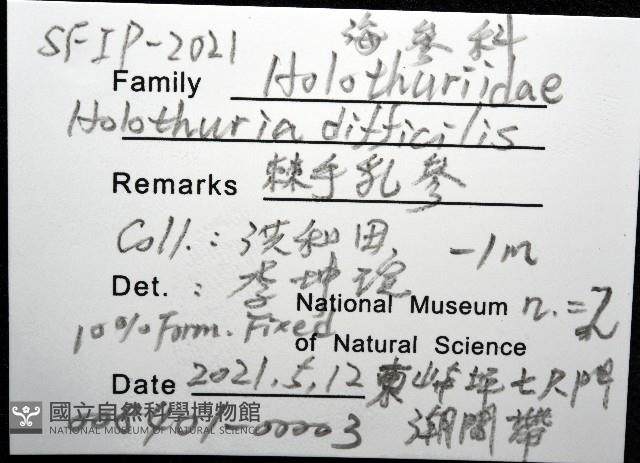 SFIP-2021 海參科
Family Holothuriidae
Holothuria difficilis
Remarks 棘手乳參
Coll.: 洪和田, -1m
Det.: 李坤瑄
National Museum n.=2
10% Form. Fixed
of Natural Science
Date 2021.5.12 東峙坪七尺門
潮間帶
國立自然科學博物館
NATIONAL MUSEUM OF NATURAL SCIENCE
00003